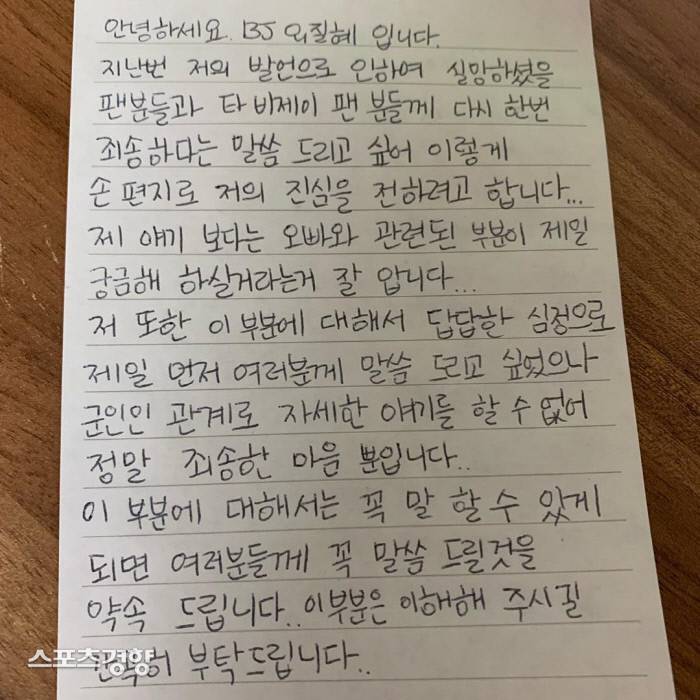 안녕하세요. BJ 외질혜 입니다.
지난번 저의 발언으로 인하여 실망하셨을
팬분들과 타 비제이 팬 분들께 다시 한번
죄송하다는 말씀 드리고 싶어 이렇게
손 편지로 저의 진심을 전하려고 합니다...
제 얘기 보다는 오빠와 관련된 부분이 제일
궁금해 하실거라는거 잘 압니다...
저 또한 이 부분에 대해서 답답한 심정으로
제일 먼저 여러분께 말씀 드리고 싶었으나
군인인 관계로 자세한 얘기를 할 수 없어
정말 죄송한 마음 뿐입니다..
이 부분에 대해서는 꼭 말 할 수 있게
되면 여러분들께 꼭 말씀 드릴것을
약속 드립니다.. 이부분은 이해해 주시길
부탁드립니다..
스포츠경향